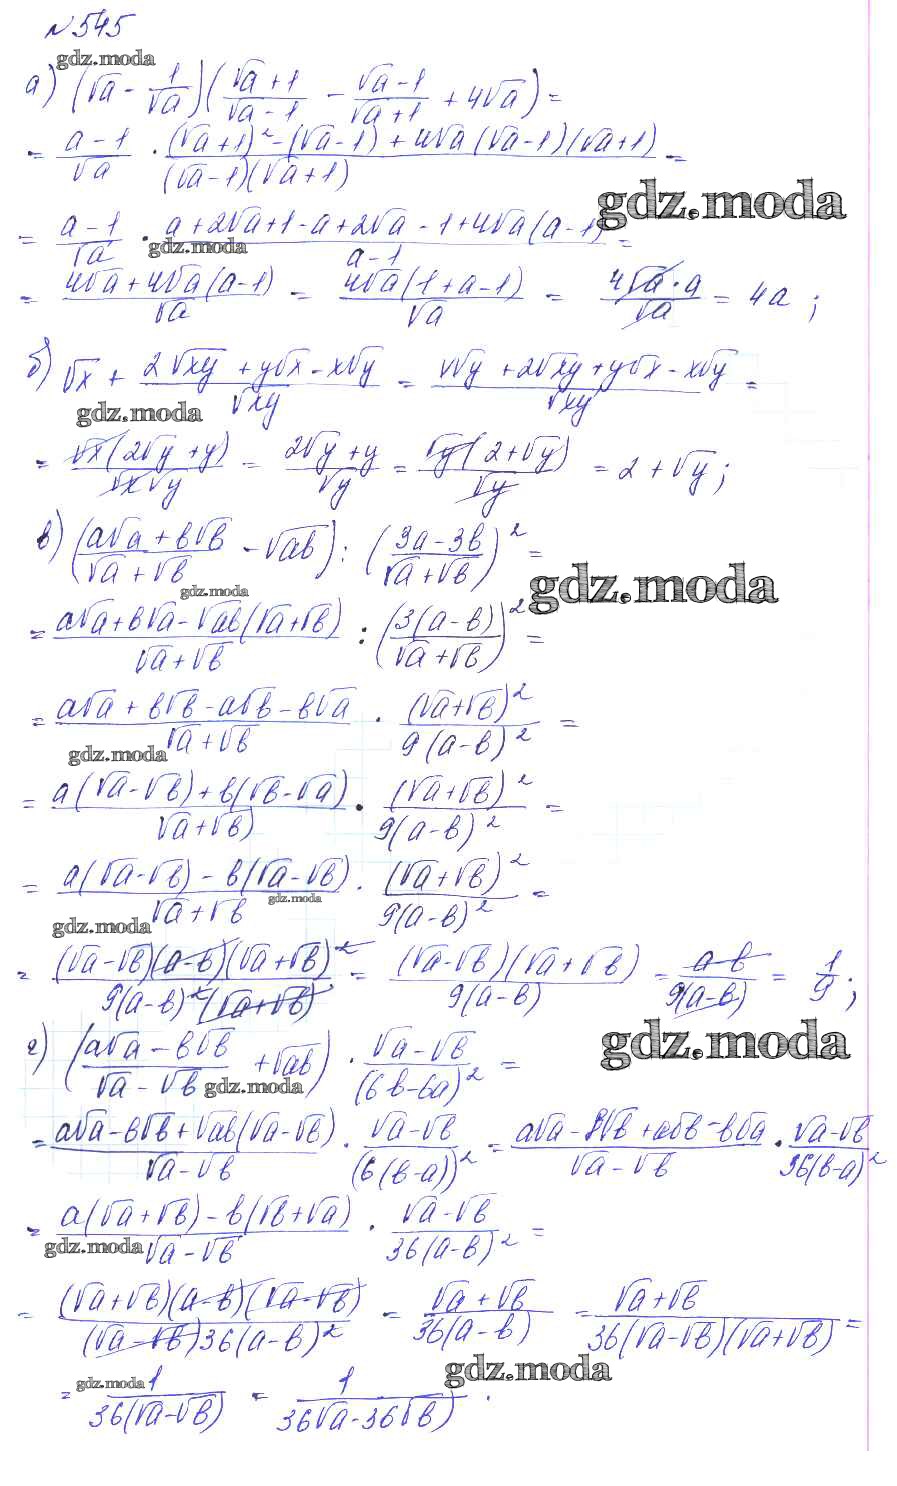 № 545
gdz.moda
а) (√a - 1/√a)((√a+1)/(√a-1) - (√a-1)/(√a+1) + 4√a) =
= (a-1)/√a · ((√a+1)² - (√a-1) + 4√a(√a-1)(√a+1))/((√a-1)(√a+1)) =
gdz.moda
= (a-1)/√a · (a+2√a+1-a+2√a-1+4√a(a-1))/(a-1) =
gdz.moda
= (4√a+4√a(a-1))/√a = (4√a(1+a-1))/√a = (4√a·a)/√a = 4a;
б) √x + (2√xy + y√x - x√y)/√xy = (x√y + 2√xy + y√x - x√y)/√xy =
gdz.moda
= (√x(2√y + y))/(√x√y) = (2√y + y)/√y = (√y(2+√y))/√y = 2+√y;
в) ((a√a + b√b)/(√a+√b) - √ab) : ((3a-3b)/(√a+√b))² =
gdz.moda
gdz.moda
= (a√a+b√a-√ab(√a+√b))/(√a+√b) : (3(a-b)/(√a+√b))² =
= (a√a + b√b - a√b - b√a)/(√a+√b) · (√a+√b)²/(9(a-b)²) =
gdz.moda
= (a(√a-√b)+b(√b-√a))/(√a+√b) · (√a+√b)²/(9(a-b)²) =
= (a(√a-√b) - b(√a-√b))/(√a+√b) · (√a+√b)²/(9(a-b)²) =
gdz.moda
gdz.moda
= ((√a-√b)(a-b)(√a+√b)²)/(9(a-b)²(√a+√b)) = ((√a-√b)(√a+√b))/(9(a-b)) = (a-b)/(9(a-b)) = 1/9;
г) ((a√a - b√b)/(√a-√b) + √ab) · (√a-√b)/(6b-6a)² =
gdz.moda
gdz.moda
= (a√a-b√b+√ab(√a-√b))/(√a-√b) · (√a-√b)/(6(b-a))² = (a√a-b√b+a√b-b√a)/(√a-√b) · (√a-√b)/(36(b-a)²)
= (a(√a+√b)-b(√b+√a))/(√a-√b) · (√a-√b)/(36(a-b)²) =
gdz.moda
= ((√a+√b)(a-b)(√a-√b))/((√a-√b)36(a-b)²) = (√a+√b)/(36(a-b)) = (√a+√b)/(36(√a-√b)(√a+√b)) =
gdz.moda
gdz.moda
= 1/(36(√a-√b)) = 1/(36√a-36√b)).